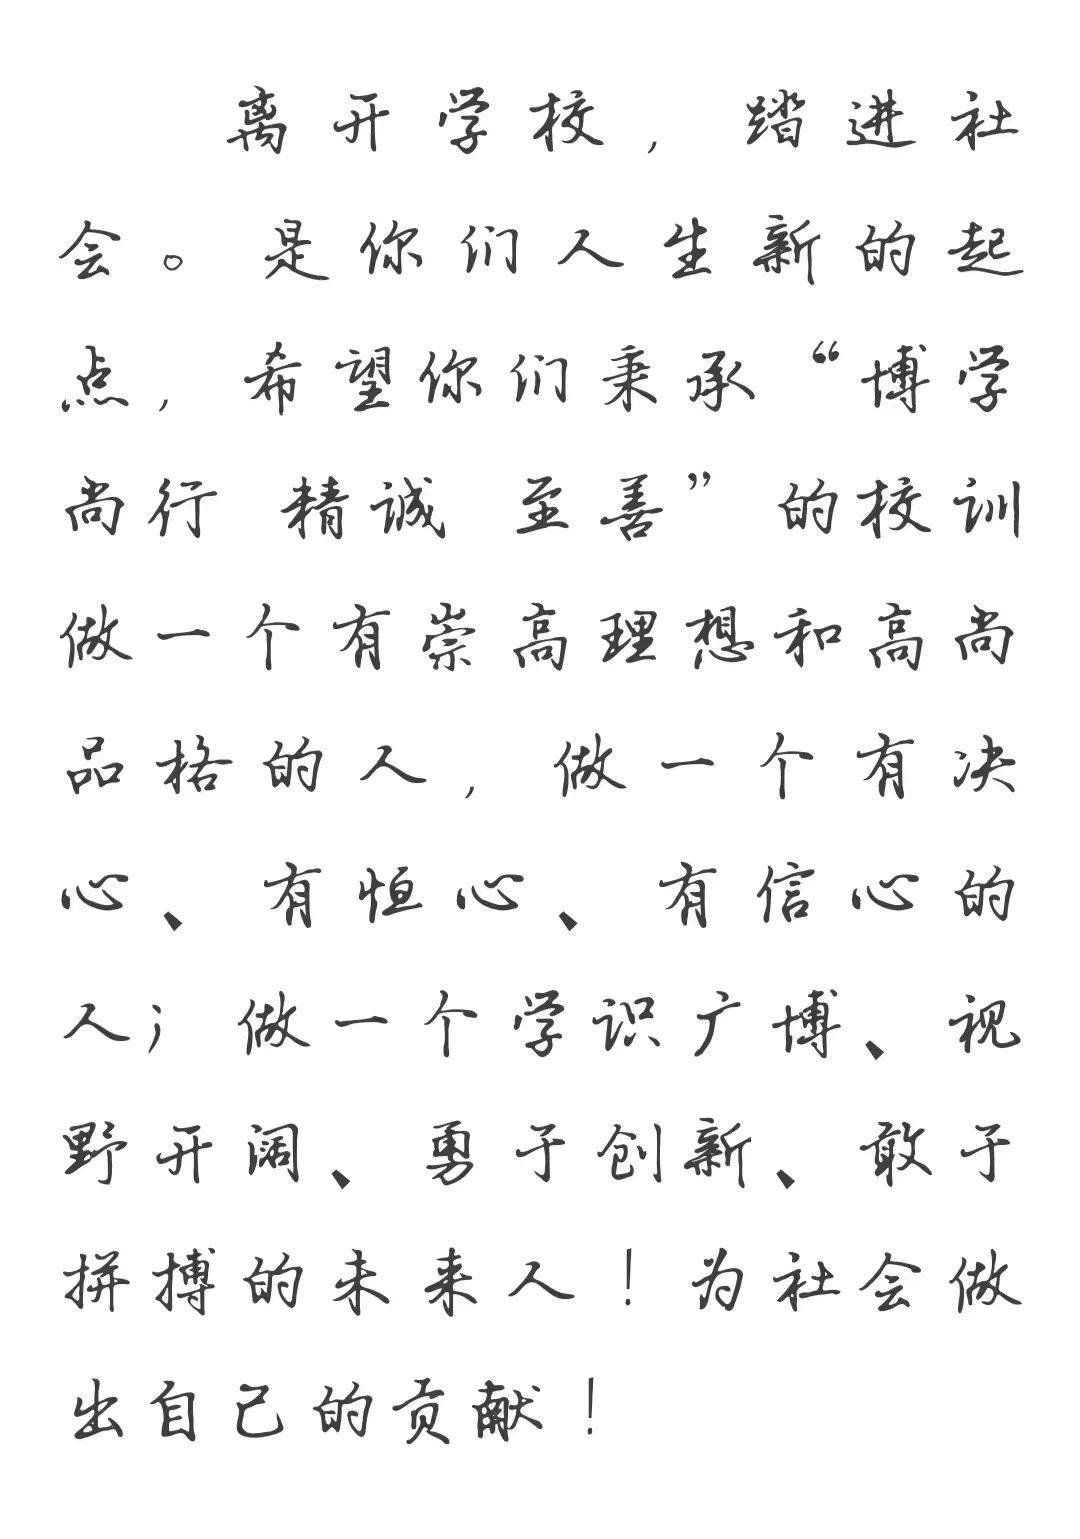 离开学校，踏进社
会。是你们人生新的起
点，希望你们秉承“博学
尚行 精诚 至善”的校训
做一个有崇高理想和高尚
品格的人，做一个有决
心、有恒心、有信心的
人；做一个学识广博、视
野开阔、勇于创新、敢于
拼搏的未来人！为社会做
出自己的贡献！